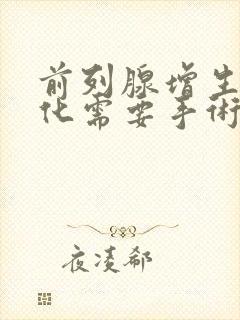 前列腺增生
化需要手術
夜凌郗